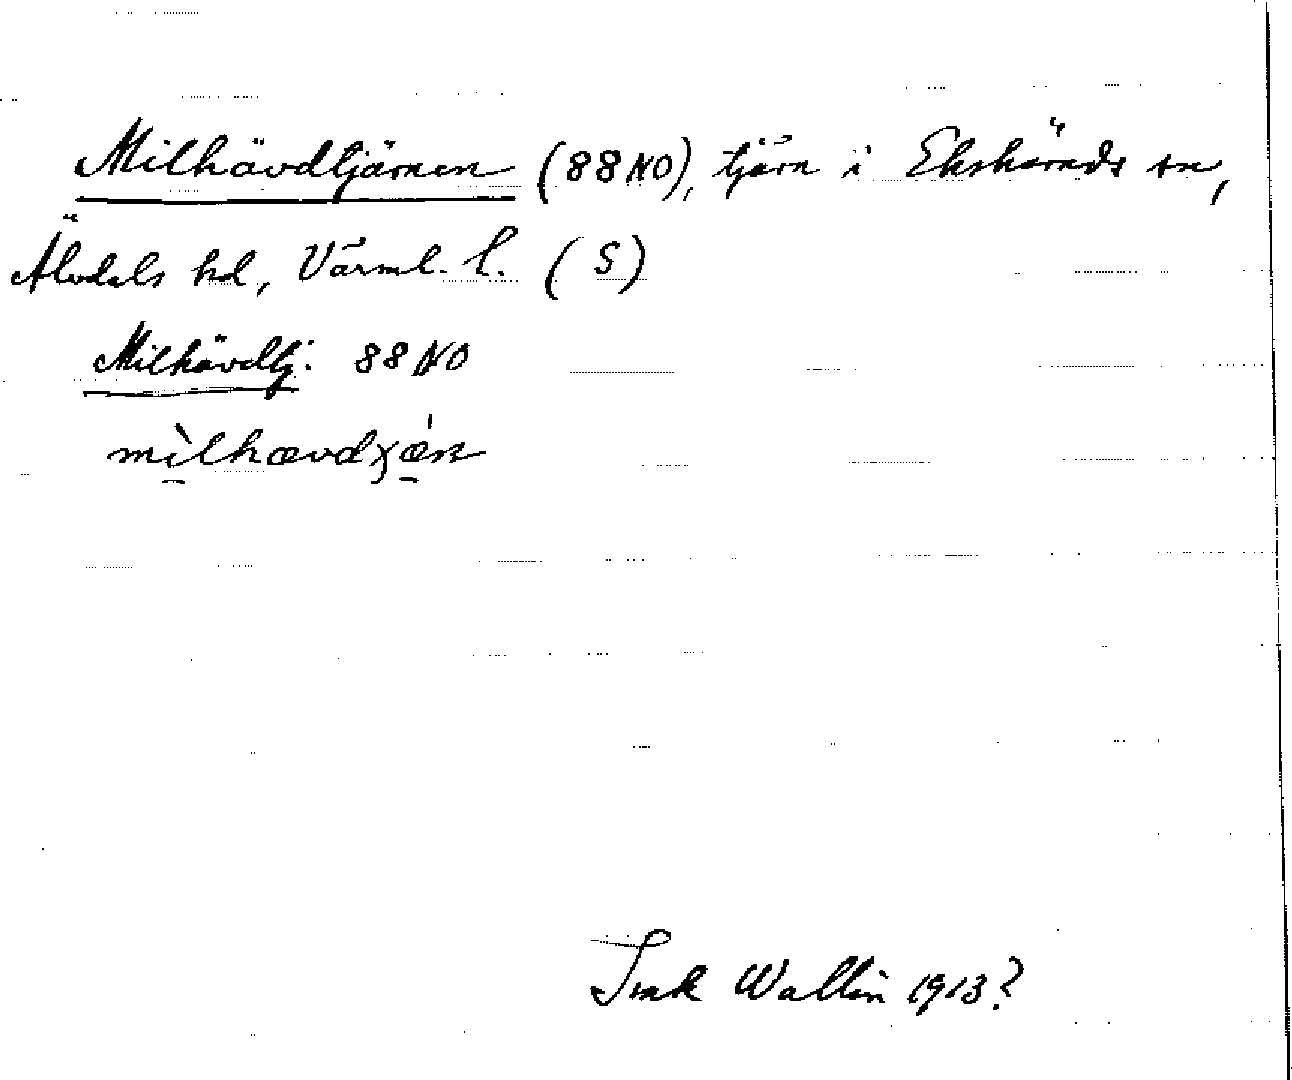 Milhävdtjärnen (88 NO), tjärn i Ekshärads sn,
Älvdals hd, Värml. l. (S)
Milhävdtj. 88 NO
mìlhævdχæ̀n
Wallin 1913?